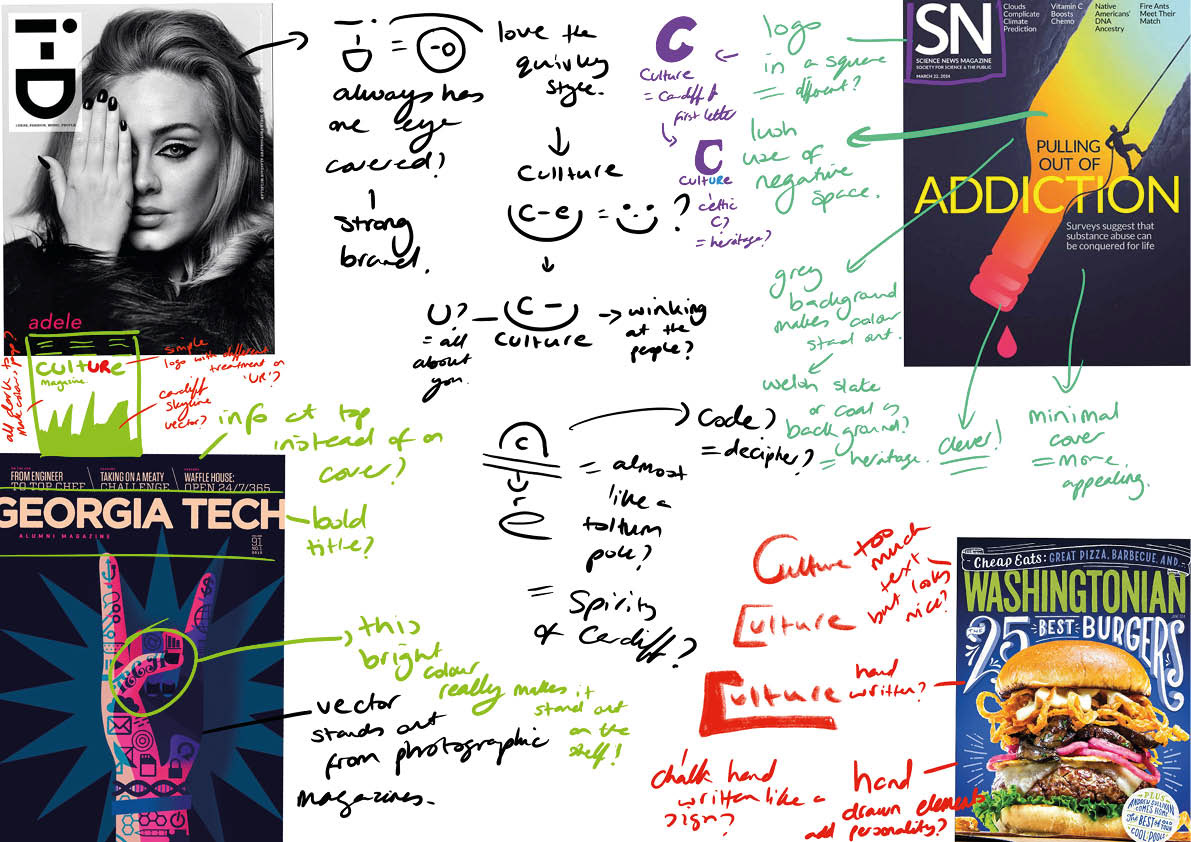 i-D
I-DEAS, FASHION, MUSIC, PEOPLE
adele
i-D = -o
always has
one eye
covered?
strong
brand.
love the
quirky
style.
Cullture
C-e = :) ?
U? C -
= all
about
you.
Culture
→ winking
at the
people?
C
Culture
= Cardiff
first letter
C
CultURe
celtic
C?
= heritage?
logo
in a square
= different?
lush
use of
negative
space.
grey
background
makes colour
stand out.
welsh slate
or coal as
background?
= heritage.
clever!
minimal
cover
= more
appealing.
SN
SCIENCE NEWS MAGAZINE
SOCIETY FOR SCIENCE & THE PUBLIC
MARCH 22, 2014
Clouds
Complicate
Climate
Prediction
Vitamin C
Boosts
Chemo
Native
Americans'
DNA
Ancestry
Fire Ants
Meet Their
Match
PULLING
OUT OF
ADDICTION
Surveys suggest that
substance abuse can
be conquered for life
cultURe
Magazine
simple
logo with different
treatment on
'UR'?
cardiff
skyline
vector?
info at top
instead of on
cover?
FROM ENGINEER
TO TOP CHEF
TAKING ON A MEATY
CHALLENGE
WAFFLE HOUSE:
OPEN 24/7/365
GEORGIA TECH
ALUMNI MAGAZINE
VOLUME
91
NO.1
2015
bold
title?
TECH
this
bright
colour
really makes it
stand out
on the
shelf!
vector
stands out
from photographic
magazines.
C
r
e
code?
= decipher?
= almost
like a
toltum
pole?
= Spirits
of Cardiff?
Culture
Culture
Culture
too
much
text
but looks
nice?
hand
written?
chalk hand
written like a
sign?
hand
drawn elements
add personality?
Cheap Eats: GREAT PIZZA, BARBECUE, AND...
WASHINGTONIAN
THE
25 BEST BURGERS
PLUS
ANDREW SULLIVAN
COMES HOME
THE BEST OF OLD TOWN
COOL POOLS